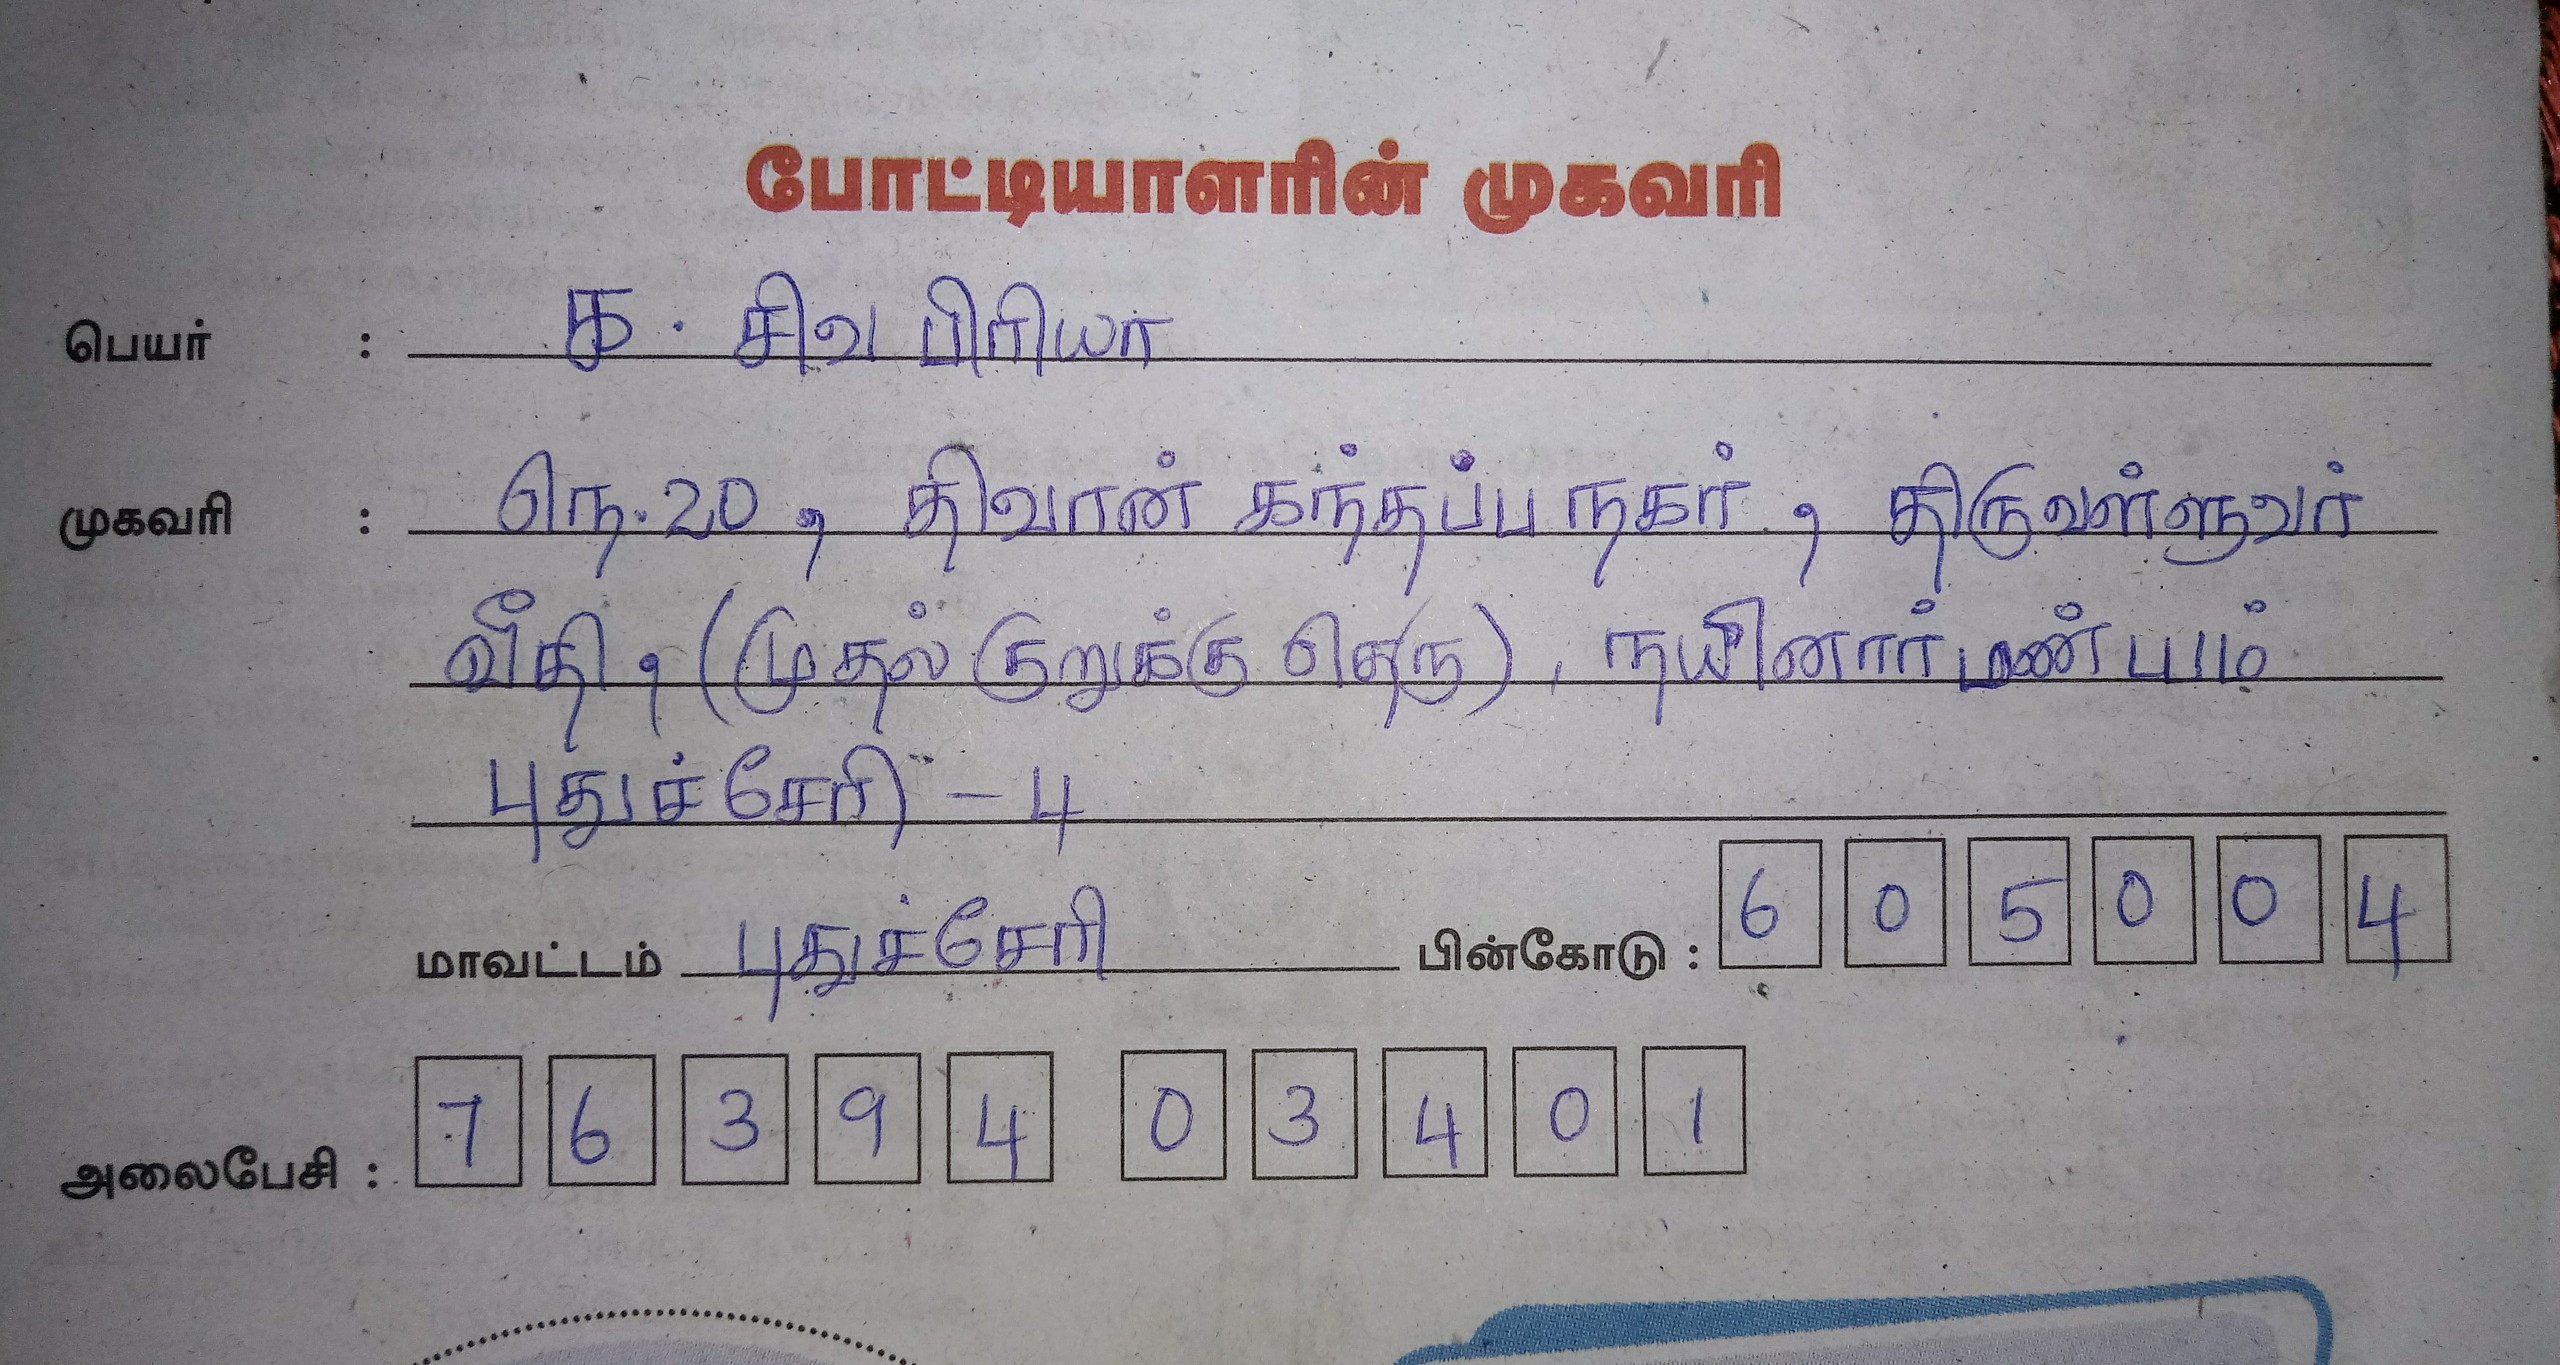 போட்டியாளரின் முகவரி
பெயர் : க. சிவ பிரியா
முகவரி : நெ.20, திவான் கந்தப்ப நகர், திருவள்ளுவர்
வீதி, (முதல் குறுக்கு தெரு), நயினார்மண்டபம்
புதுச்சேரி - 4
மாவட்டம் புதுச்சேரி பின்கோடு : 605004
அலைபேசி : 76394 03401